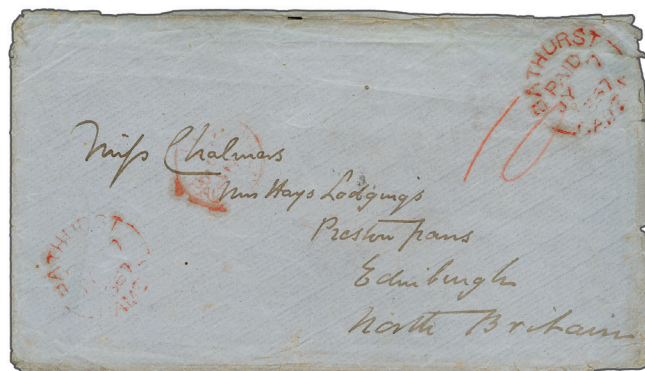 BATHURST
PAID
Miss Chalmers
Mrs Hays Lodgings
Preston pans
Edinburgh
North Britain
BATHURST